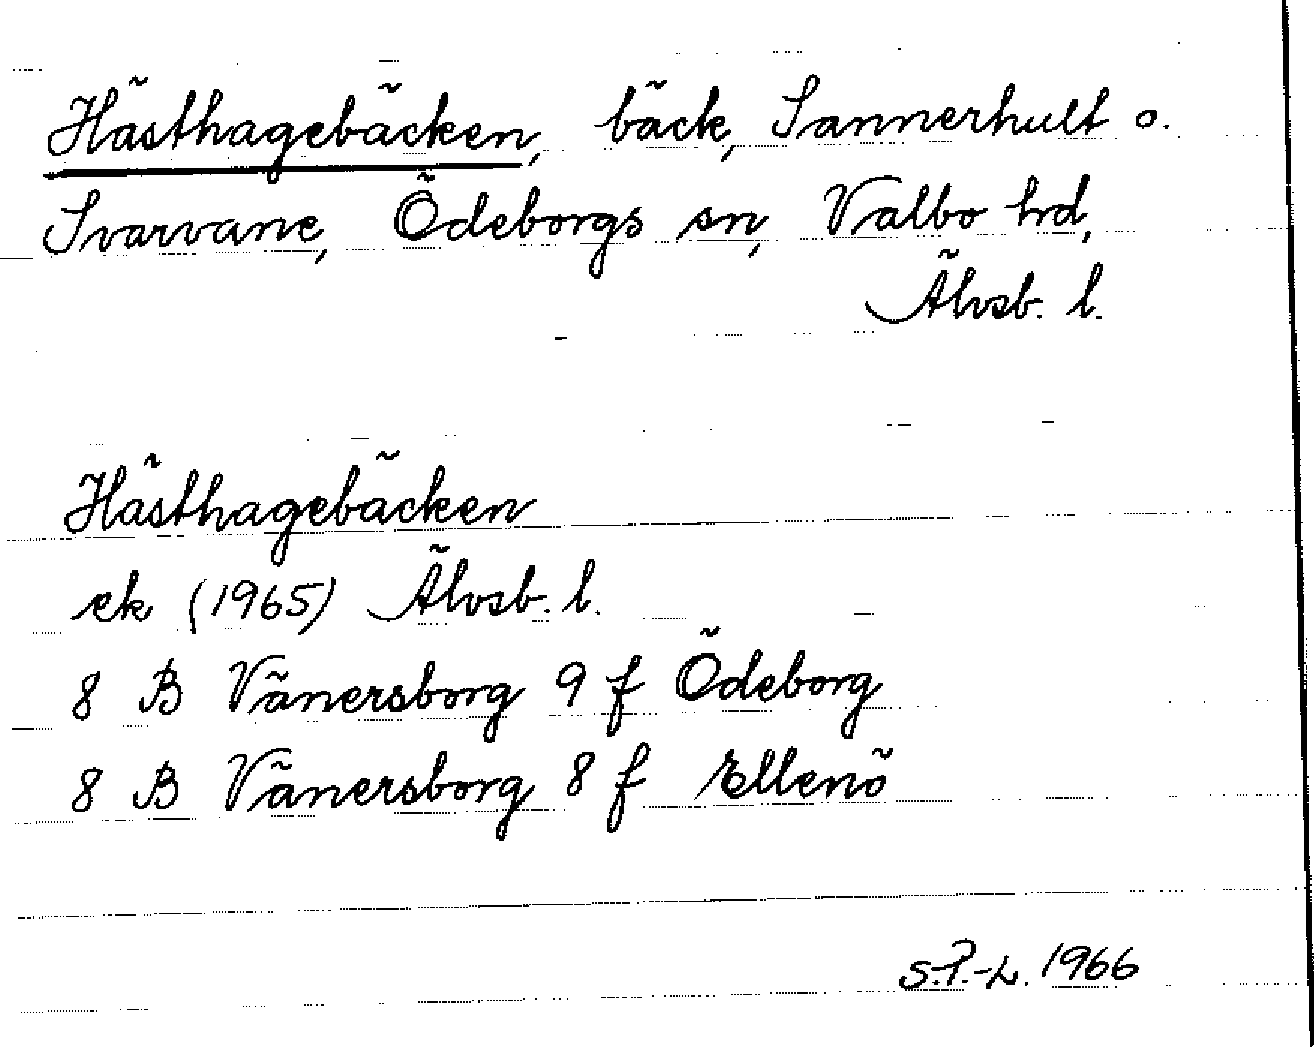 Hästhagebäcken, bäck, Sannerhult o.
Svarvane, Ödeborgs sn, Valbo hd,
Älvsb. l.
Hästhagebäcken
ek (1965) Älvsb. l.
8 B Vänersborg 9 f Ödeborg
8 B Vänersborg 8 f Ellenö
S.P.-L. 1966